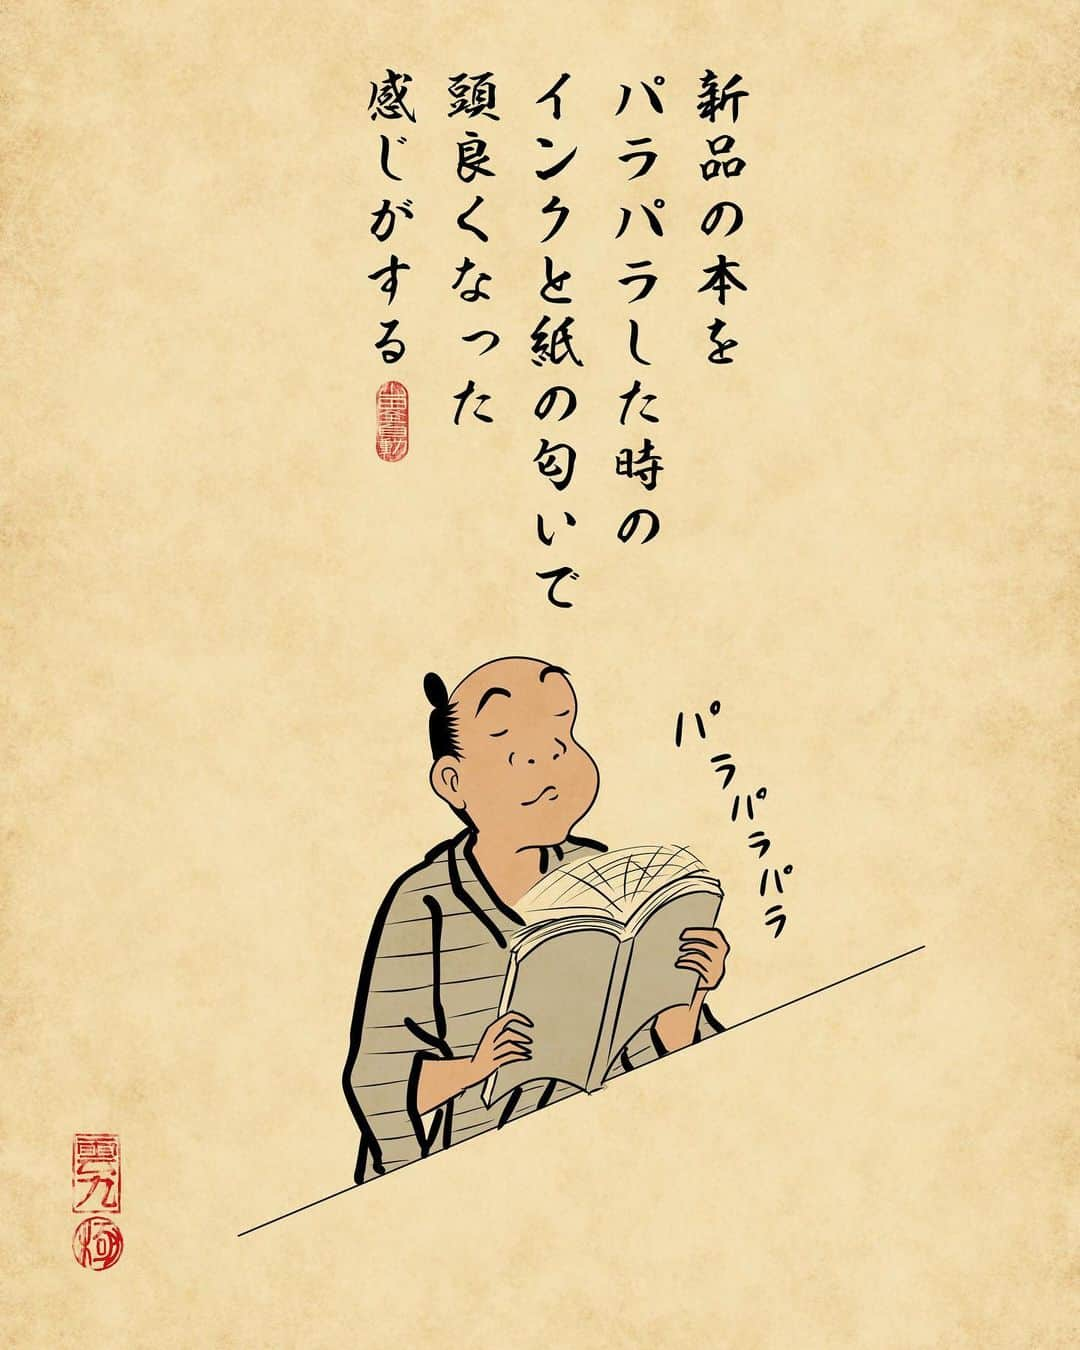 新品の本を
パラパラした時の
インクと紙の匂いで
頭良くなった
感じがする
パラパラパラ